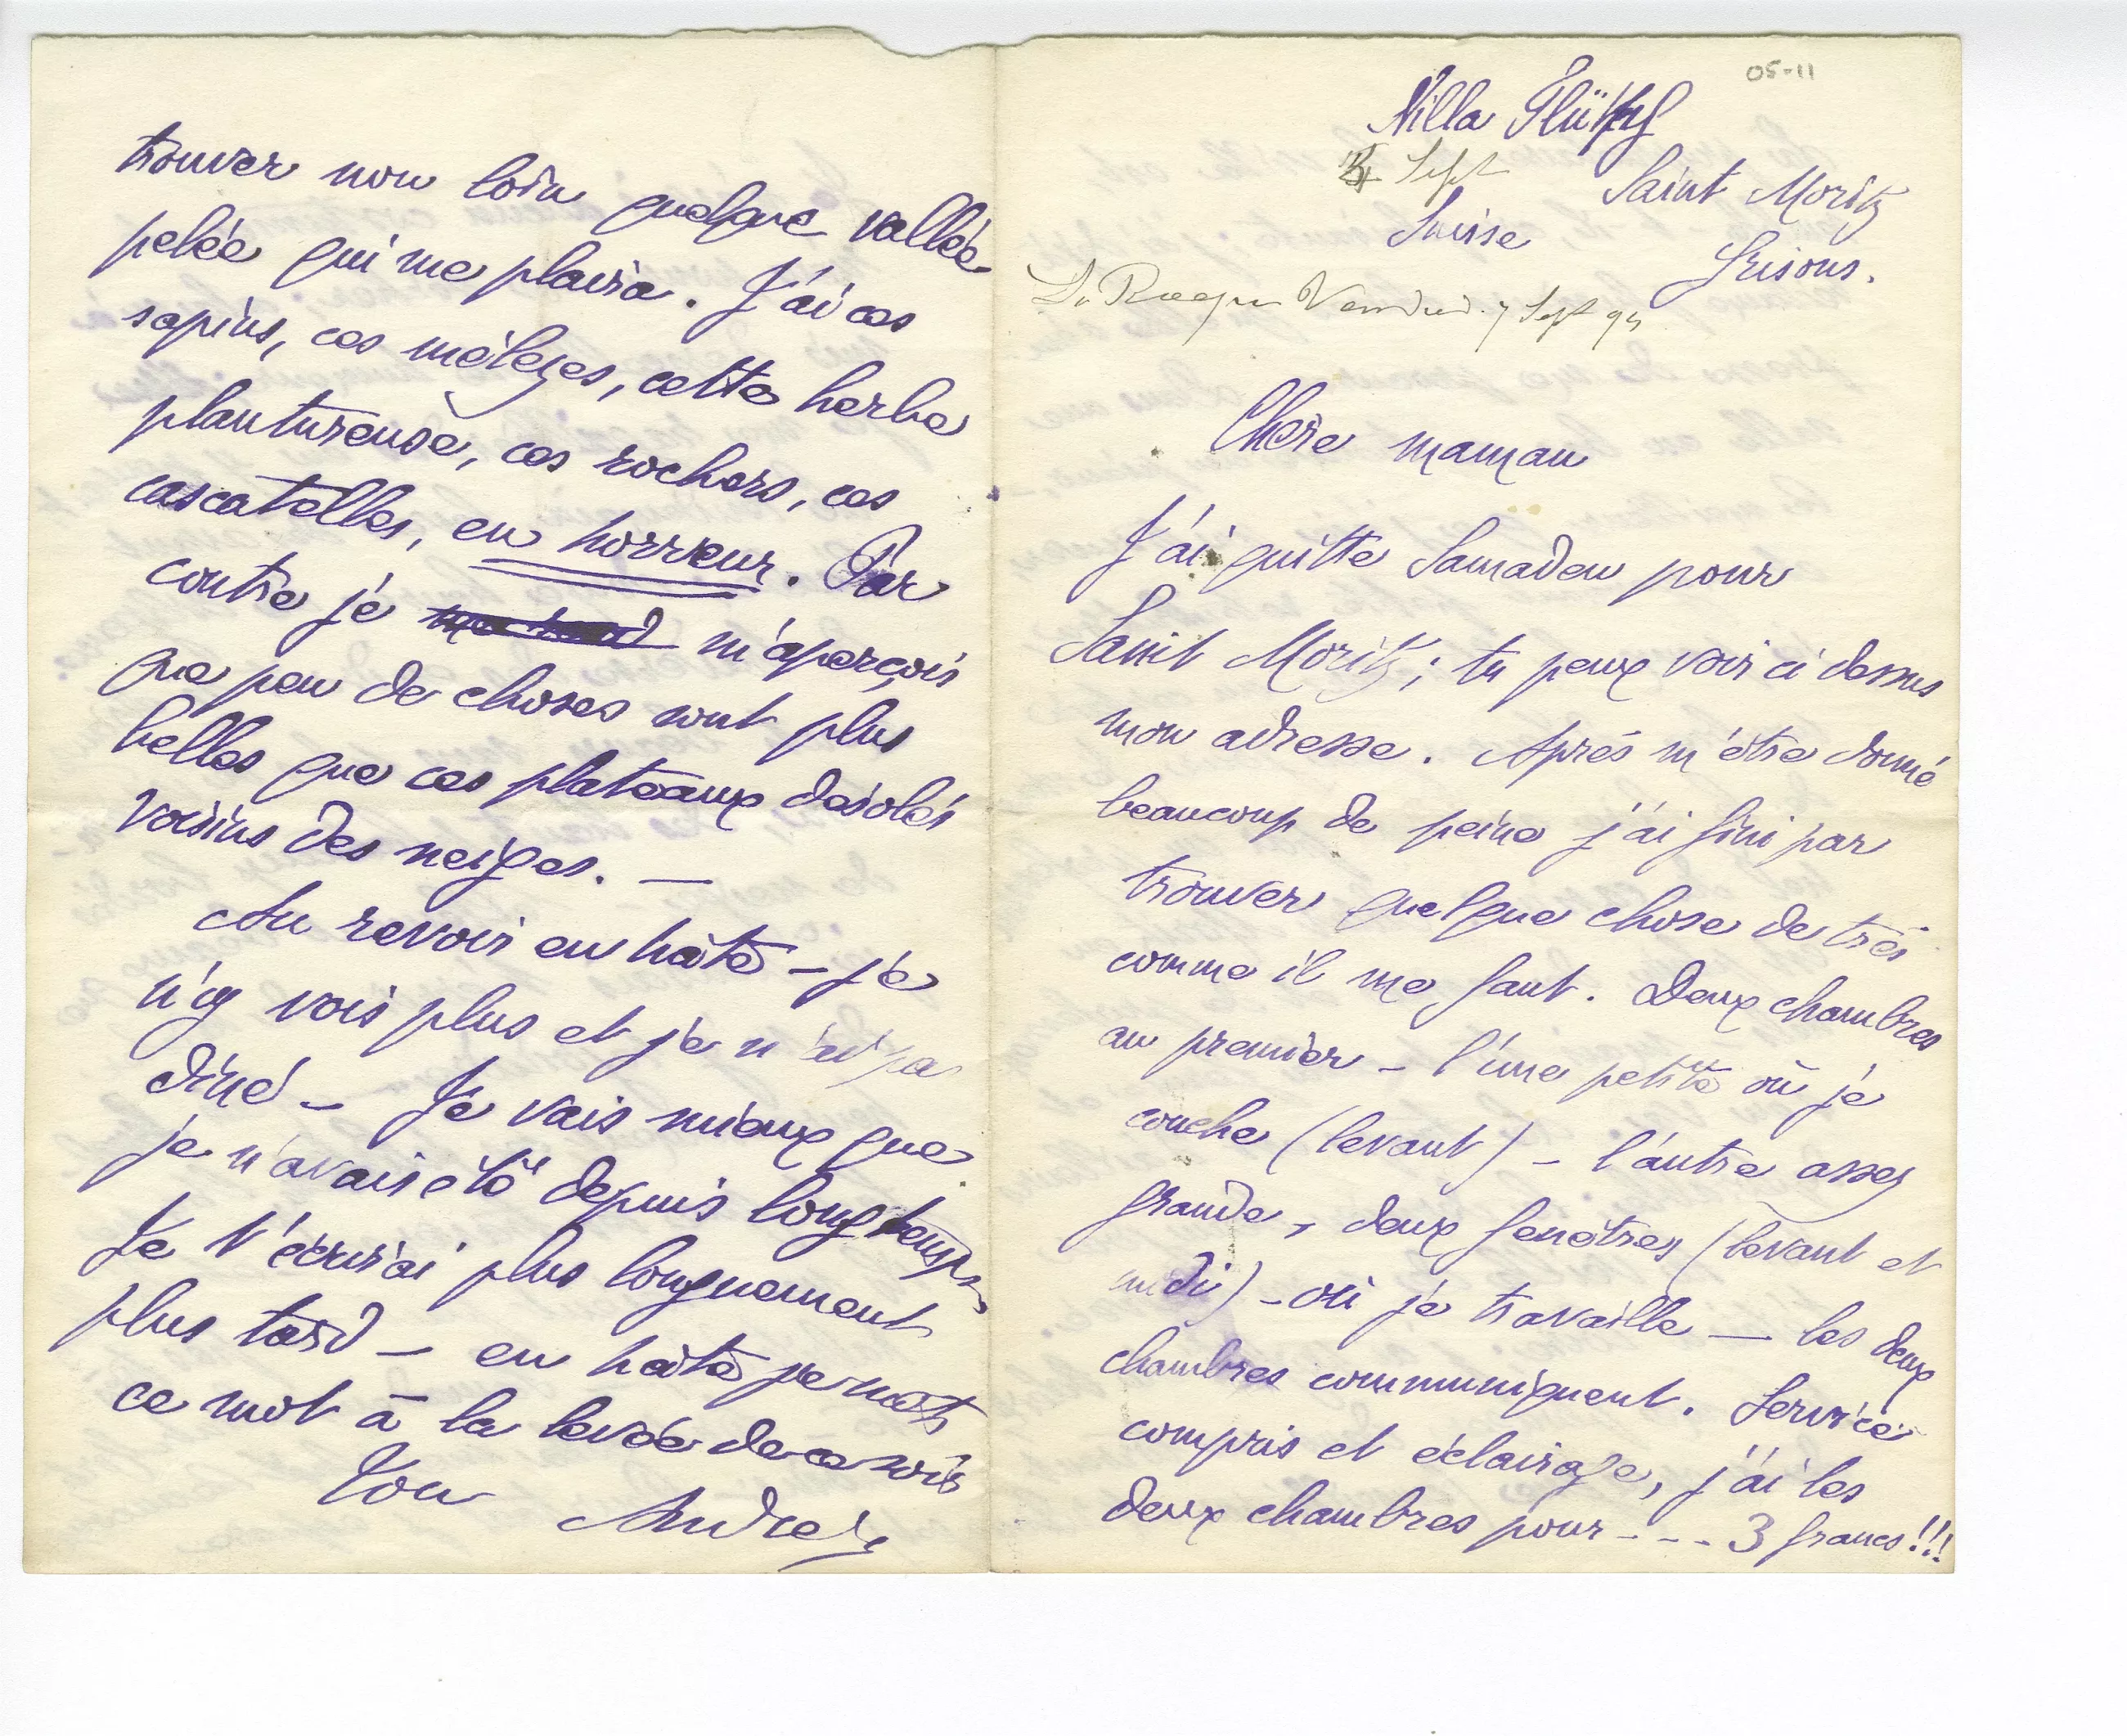 05-11
Villa
Sept
Saint Moritz
Suisse
Grisons.
La Roque Vendredi 7 Sept 94
Chère maman
J'ai quitté Samaden pour
Saint Moritz ; tu peux voir ci dessus
mon adresse. Après m'être donné
beaucoup de peine j'ai fini par
trouver quelque chose de très
comme il me faut. Deux chambres
au premier – l'une petite où je
couche (levant) – l'autre assez
grande, deux fenêtres (levant et
midi) – où je travaille — les deux
chambres communiquent. Service
compris et éclairage, j'ai les
deux chambres pour - - - 3 francs !!!
trouver non loin quelque vallée
pelée qui me plaira. J'ai ces
sapins, ces mélèzes, cette herbe
plantureuse, ces rochers, ces
cascatelles, en horreur. Par
contre je m'aperçois
que peu de choses sont plus
belles que ces plateaux désolés
voisins des neiges. —
Au revoir en hâte – je
n'y vois plus et je n'ai pas
dîné – Je vais mieux que
je n'avais été depuis longtemps
Je t'écrirai plus longuement
plus tard – en hâte je mets
ce mot à la levée de ce soir
Ton
André